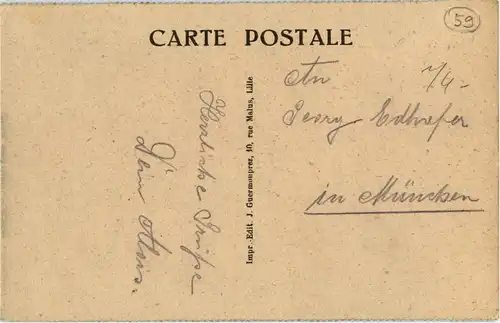 59
CARTE POSTALE
An
Georg Edlhofer
in München
Herzliche Grüße
Dein Alois.
Impr.-Edit. J. Guermonprez, 10, rue Malus, Lille